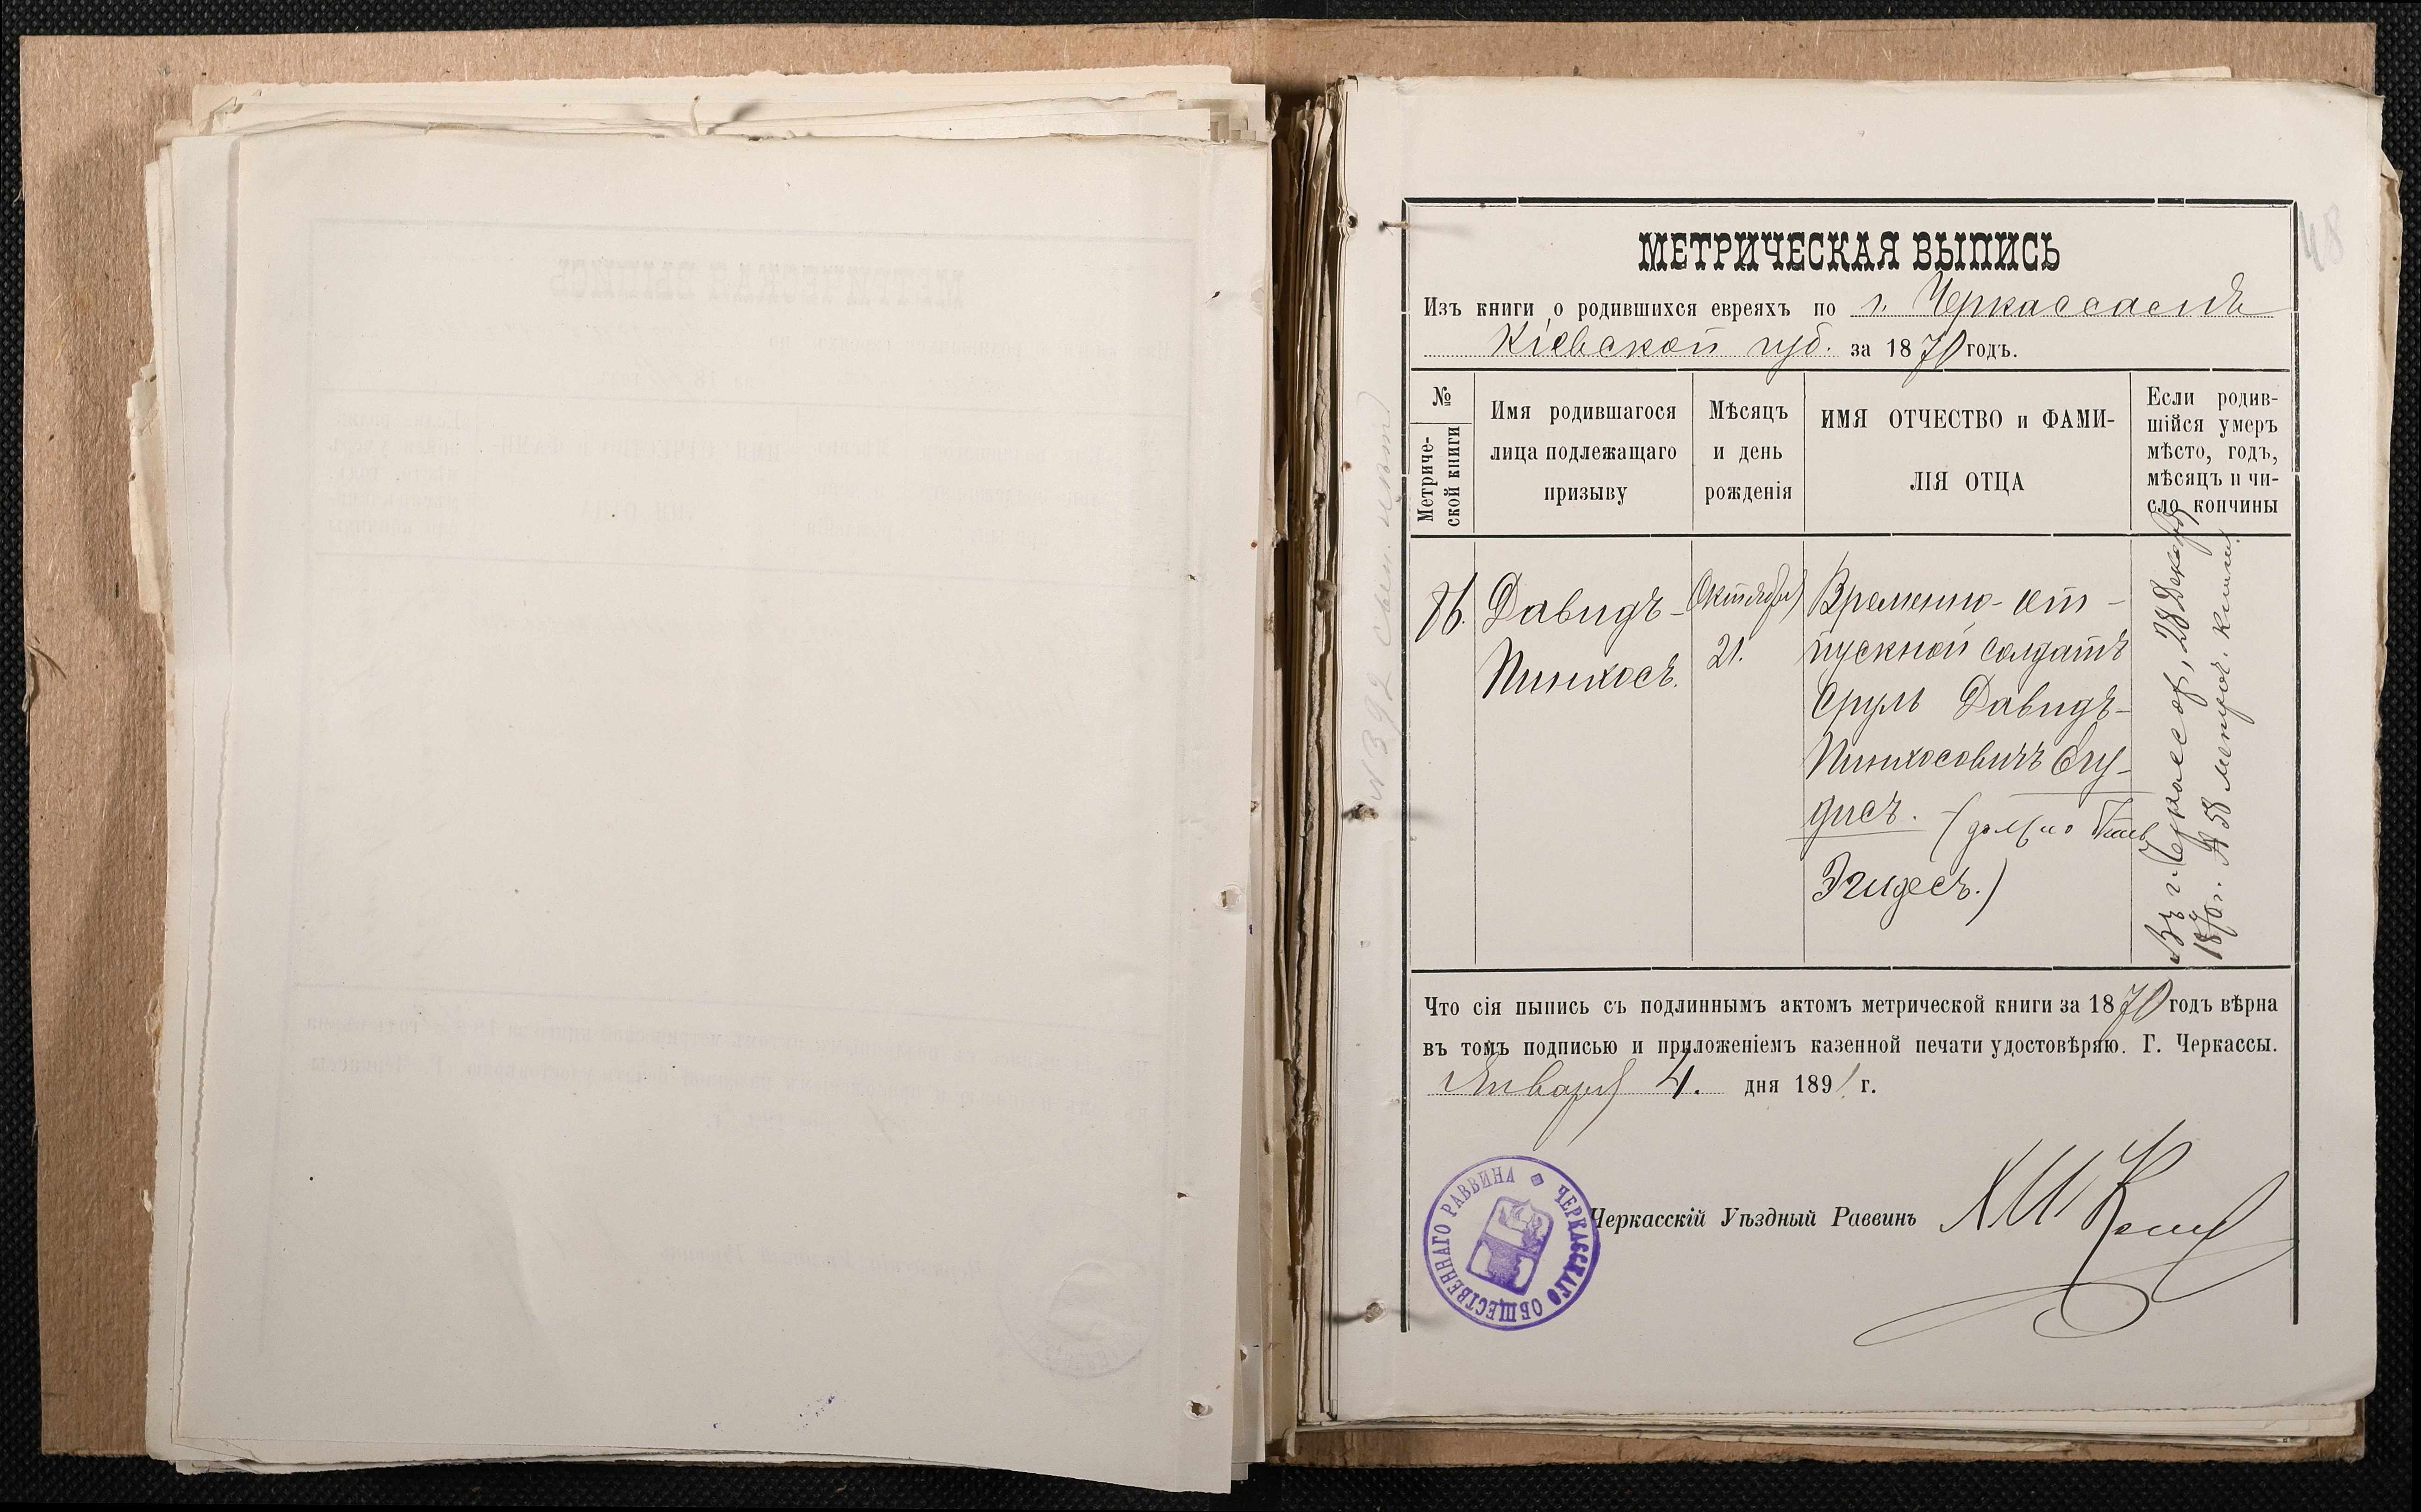 48
МЕТРИЧЕСКАЯ ВЫПИСЬ
Изъ книги о родившихся евреяхъ по г. Черкассамъ
Кіевской губ. за 1870 годъ.
№
Метриче-
ской книги
Имя родившагося
лица подлежащаго
призыву
Мѣсяцъ
и день
рожденія
ИМЯ ОТЧЕСТВО и ФАМИ-
ЛІЯ ОТЦА
Если родив-
шійся умеръ
мѣсто, годъ,
мѣсяцъ и чи-
сло кончины
76.
Давидъ-
Пинхосъ.
Октября
21.
Временно-от-
пускной солдатъ
Сруль Давидъ-
Пинхосовичъ
дисъ. (должно быть
Эгидесъ.)
Въ г. Черкассах, 28 Декабря
1870 г. № 58 метрич. книги.
№ 392 сем. лист
Что сія выпись съ подлиннымъ актомъ метрической книги за 1870 годъ вѣрна
въ томъ подписью и приложеніемъ казенной печати удостовѣряю. Г. Черкассы.
Января 4. дня 1891 г.
Черкасскій Уѣздный Раввинъ
ЧЕРКАССКАГО ОБЩЕСТВЕННАГО РАВВИНА